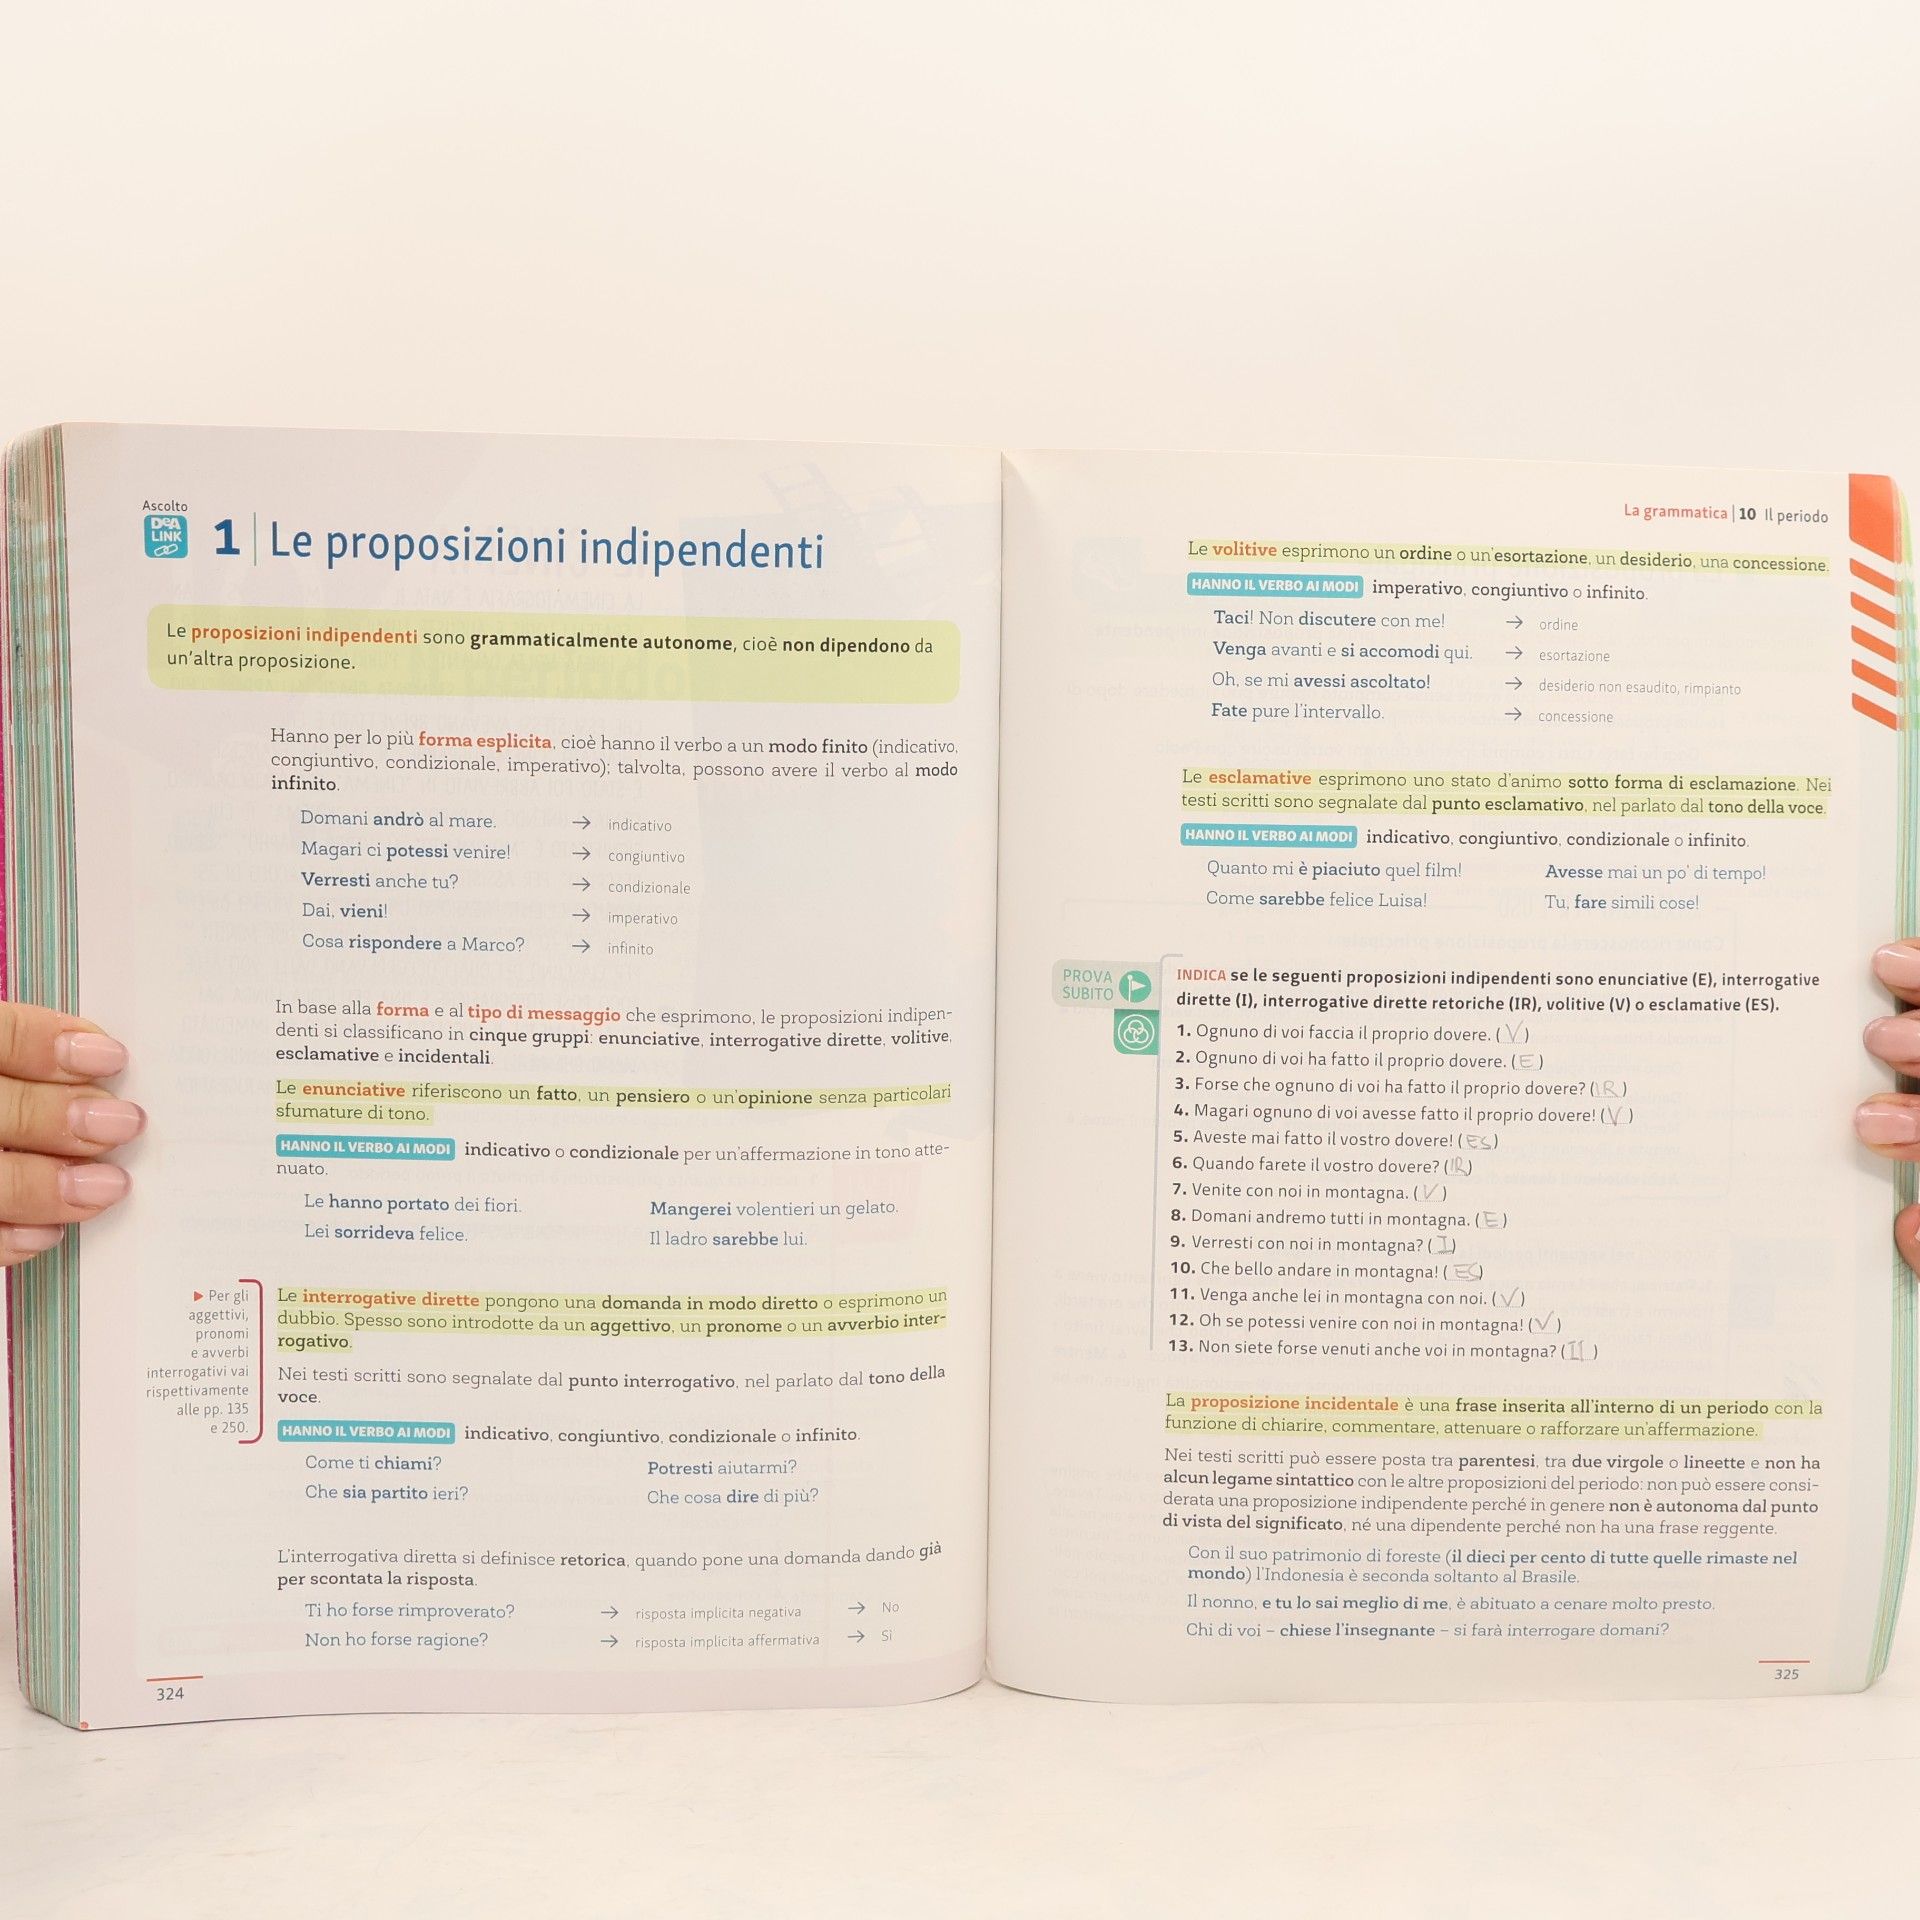 Ascolto
DeA
LINK
1 Le proposizioni indipendenti
Le proposizioni indipendenti sono grammaticalmente autonome, cioè non dipendono da
un'altra proposizione.
Hanno per lo più forma esplicita, cioè hanno il verbo a un modo finito (indicativo,
congiuntivo, condizionale, imperativo); talvolta, possono avere il verbo al modo
infinito.
Domani andrò al mare. → indicativo
Magari ci potessi venire! → congiuntivo
Verresti anche tu? → condizionale
Dai, vieni! → imperativo
Cosa rispondere a Marco? → infinito
In base alla forma e al tipo di messaggio che esprimono, le proposizioni indipen-
denti si classificano in cinque gruppi: enunciative, interrogative dirette, volitive,
esclamative e incidentali.
Le enunciative riferiscono un fatto, un pensiero o un'opinione senza particolari
sfumature di tono.
HANNO IL VERBO AI MODI indicativo o condizionale per un'affermazione in tono atte-
nuato.
Le hanno portato dei fiori. Mangerei volentieri un gelato.
Lei sorrideva felice. Il ladro sarebbe lui.
▶ Per gli
aggettivi,
pronomi
e avverbi
interrogativi vai
rispettivamente
alle pp. 135
e 250.
Le interrogative dirette pongono una domanda in modo diretto o esprimono un
dubbio. Spesso sono introdotte da un aggettivo, un pronome o un avverbio inter-
rogativo.
Nei testi scritti sono segnalate dal punto interrogativo, nel parlato dal tono della
voce.
HANNO IL VERBO AI MODI indicativo, congiuntivo, condizionale o infinito.
Come ti chiami? Potresti aiutarmi?
Che sia partito ieri? Che cosa dire di più?
L'interrogativa diretta si definisce retorica, quando pone una domanda dando già
per scontata la risposta.
Ti ho forse rimproverato? → risposta implicita negativa → No
Non ho forse ragione? → risposta implicita affermativa → Sì
324
La grammatica | 10 Il periodo
Le volitive esprimono un ordine o un'esortazione, un desiderio, una concessione.
HANNO IL VERBO AI MODI imperativo, congiuntivo o infinito.
Taci! Non discutere con me! → ordine
Venga avanti e si accomodi qui. → esortazione
Oh, se mi avessi ascoltato! → desiderio non esaudito, rimpianto
Fate pure l'intervallo. → concessione
Le esclamative esprimono uno stato d'animo sotto forma di esclamazione. Nei
testi scritti sono segnalate dal punto esclamativo, nel parlato dal tono della voce.
HANNO IL VERBO AI MODI indicativo, congiuntivo, condizionale o infinito.
Quanto mi è piaciuto quel film! Avesse mai un po' di tempo!
Come sarebbe felice Luisa! Tu, fare simili cose!
PROVA
SUBITO
INDICA se le seguenti proposizioni indipendenti sono enunciative (E), interrogative
dirette (I), interrogative dirette retoriche (IR), volitive (V) o esclamative (ES).
1. Ognuno di voi faccia il proprio dovere. (V)
2. Ognuno di voi ha fatto il proprio dovere. (E)
3. Forse che ognuno di voi ha fatto il proprio dovere? (IR)
4. Magari ognuno di voi avesse fatto il proprio dovere! (V)
5. Aveste mai fatto il vostro dovere! (ES)
6. Quando farete il vostro dovere? (IR)
7. Venite con noi in montagna. (V)
8. Domani andremo tutti in montagna. (E)
9. Verresti con noi in montagna? (I)
10. Che bello andare in montagna! (ES)
11. Venga anche lei in montagna con noi. (V)
12. Oh se potessi venire con noi in montagna! (V)
13. Non siete forse venuti anche voi in montagna? ( )
La proposizione incidentale è una frase inserita all'interno di un periodo con la
funzione di chiarire, commentare, attenuare o rafforzare un'affermazione.
Nei testi scritti può essere posta tra parentesi, tra due virgole o lineette e non ha
alcun legame sintattico con le altre proposizioni del periodo: non può essere consi-
derata una proposizione indipendente perché in genere non è autonoma dal punto
di vista del significato, né una dipendente perché non ha una frase reggente.
Con il suo patrimonio di foreste (il dieci per cento di tutte quelle rimaste nel
mondo) l'Indonesia è seconda soltanto al Brasile.
Il nonno, e tu lo sai meglio di me, è abituato a cenare molto presto.
Chi di voi – chiese l'insegnante – si farà interrogare domani?
325